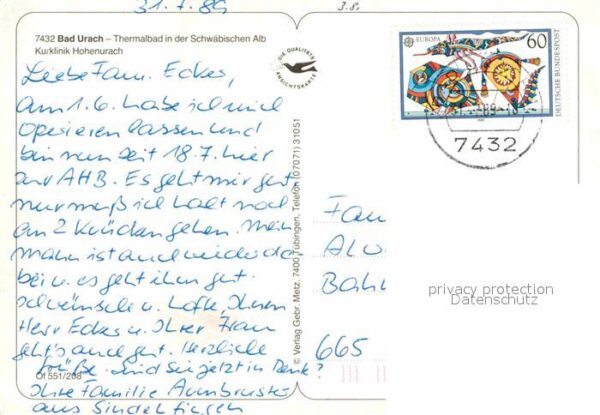 31.7.89
3.8.
7432 Bad Urach – Thermalbad in der Schwäbischen Alb
Kurklinik Hohenurach
DIE QUALITÄTS
ANSICHTSKARTE
EUROPA 60
DEUTSCHE BUNDESPOST
7432
Liebe Fam. Eckes,
am 1.6. habe ich mich
operieren lassen und
bin nun seit 18.7. hier
zur AHB. Es geht mir gut
nur muß ich halt noch
an 2 Krücken gehen. Mein
Mann ist auch wieder da
bei u. es geht ihm gut.
Ich wünsche u. hoffe, Ihnen
Herr Eckes u. Ihrer Frau
geht's auch gut. Herzliche
Grüße. Sind Sie jetzt in Rente?
Ihre Familie Armbruster
aus Sindelfingen
Öl 551/208
© Verlag Gebr. Metz, 7400 Tübingen, Telefon (07071) 31051
Fam
Bah
665
privacy protection
Datenschutz